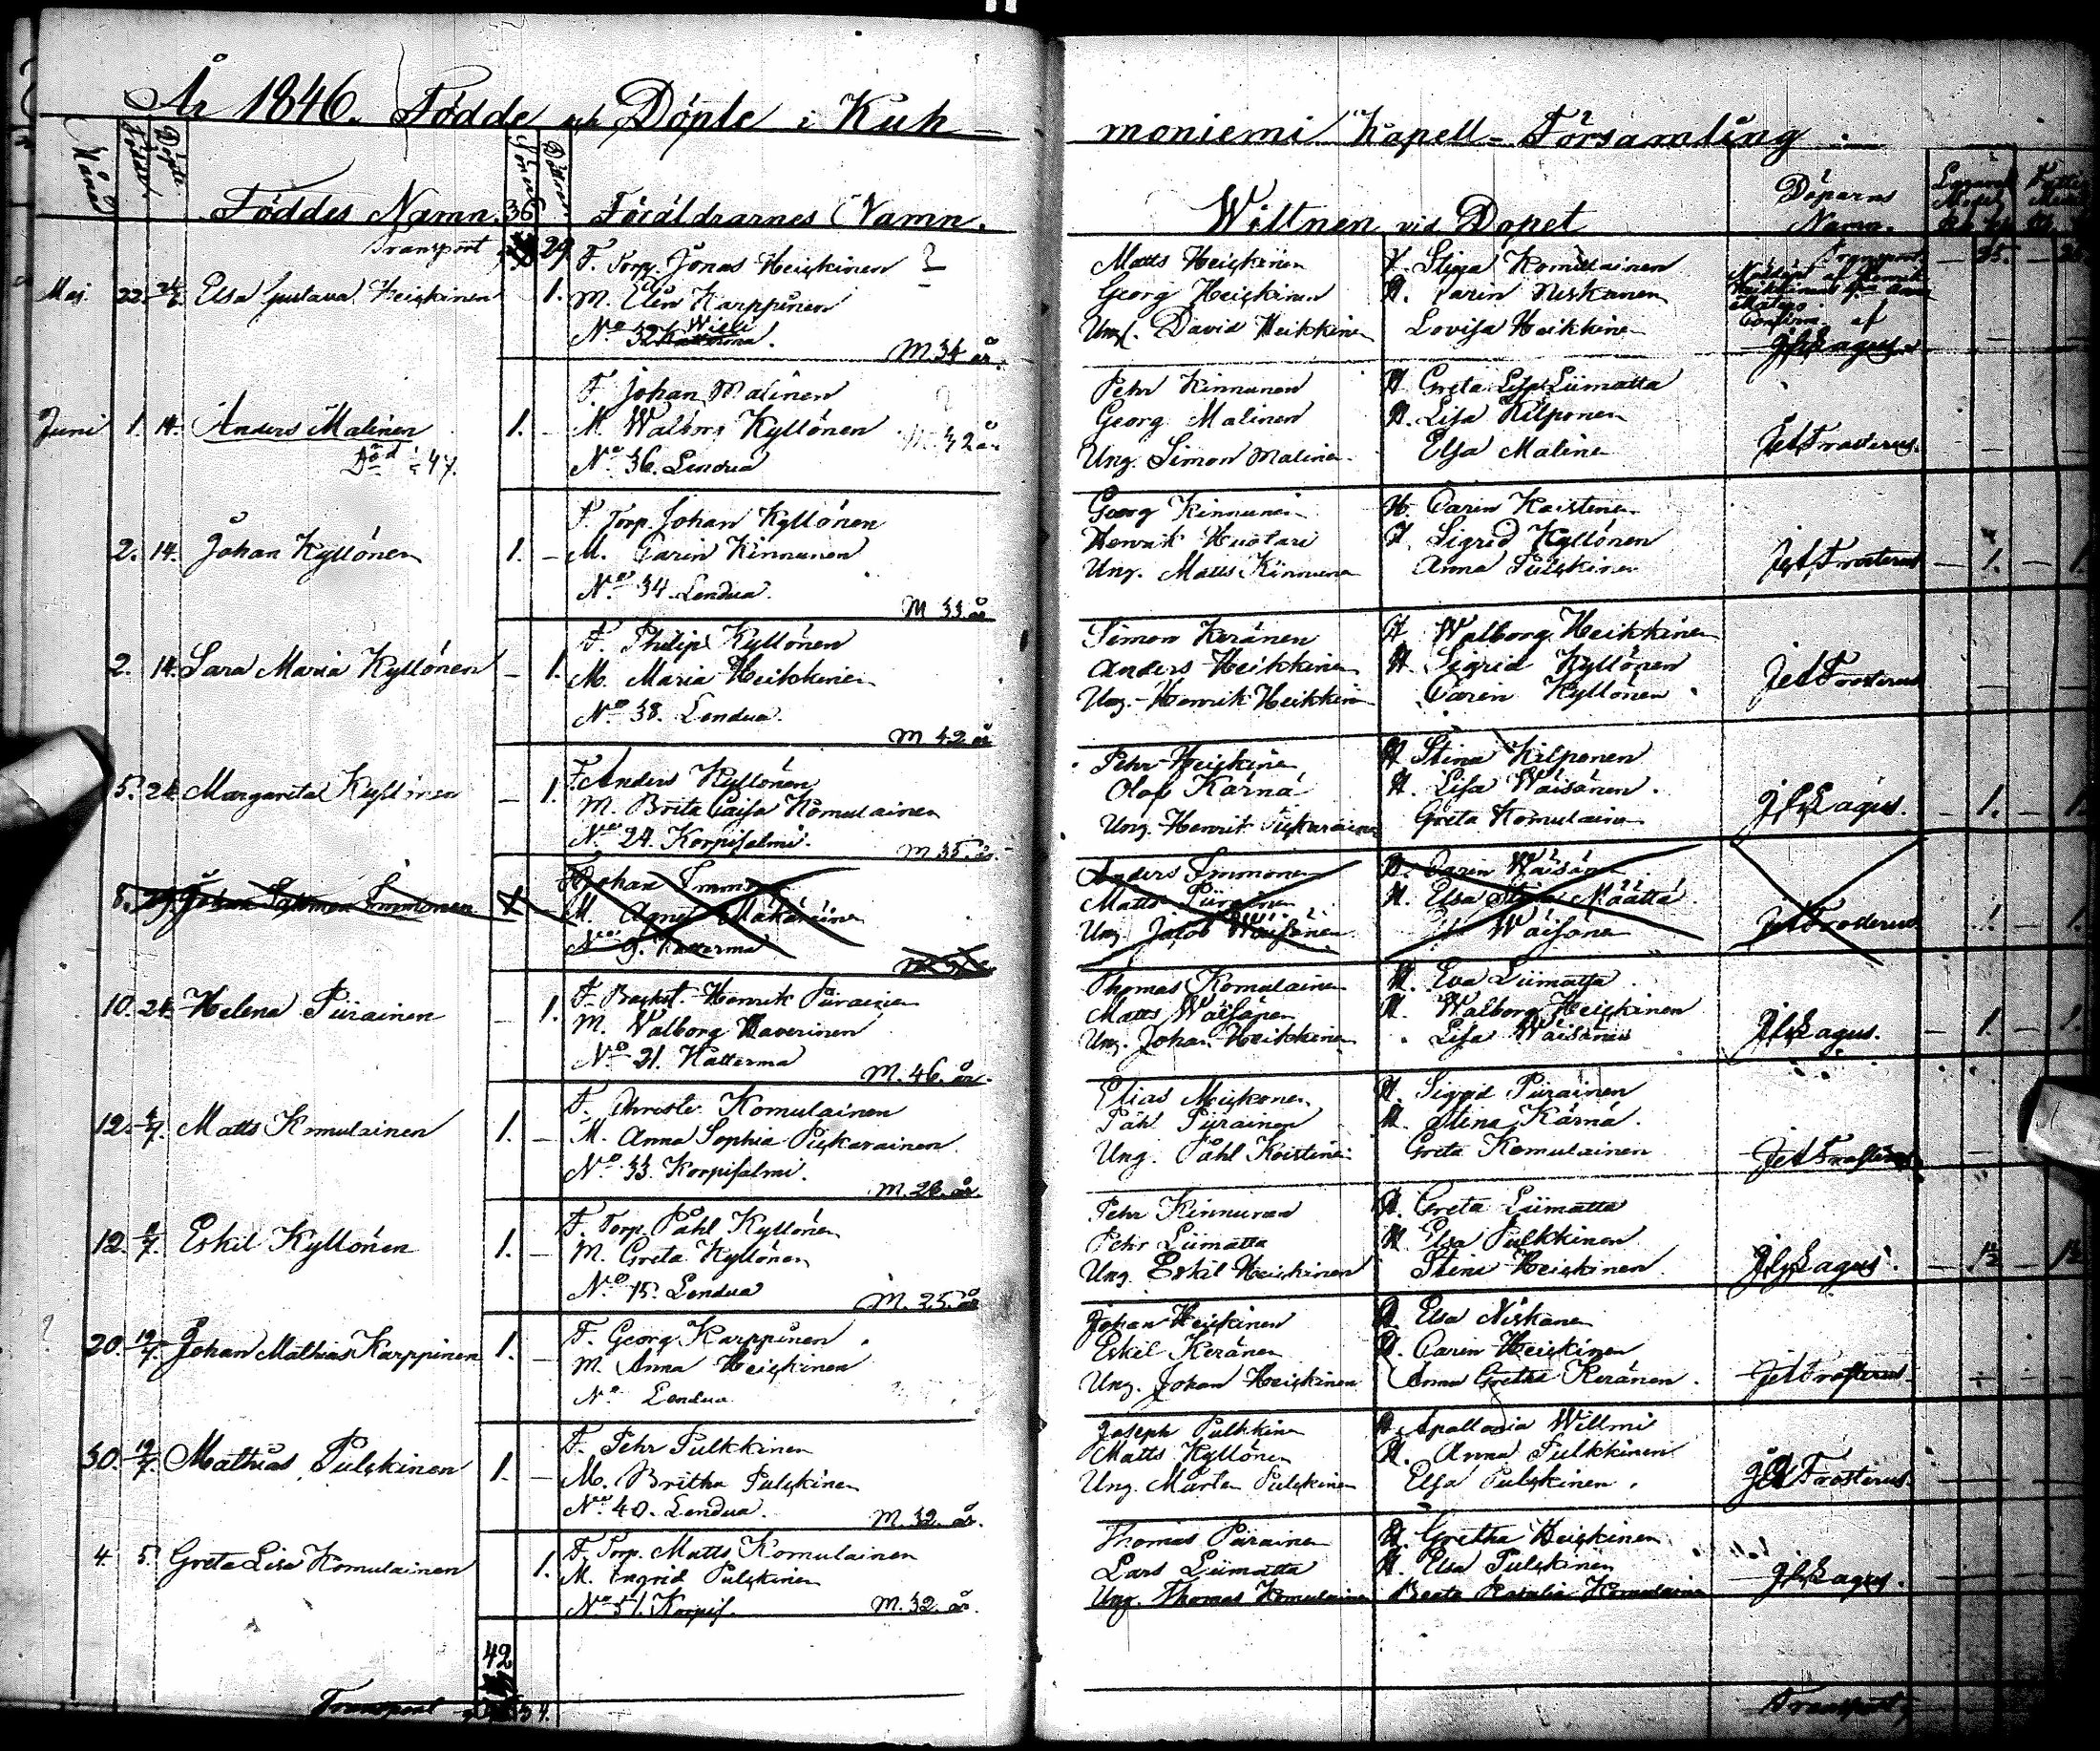 År 1846. Födde och Döpte i Kuh-
moniemi Kapell-Församling
Månad
Födde
Döpte
Föddes Namn.
Söner
Döttrar
Föräldrarnes Namn.
Wittnen vid Dopet
Döparns
Namn.
Transport
36
29
Maj. 22. 24/5. Elsa Gustava Heiskinen 1.
F. Torp. Jonas Heiskinen
M. Elin Karppinen
No 32 Wieki
M. 34 år.
Matts Heiskinen H. Stina Komulainen
Georg Heiskinen H. Carin Niskanen
Ung. David Heikkinen Lovisa Heikkinen
Transport
Confirm. af
J. F. Lagus.
Juni 1. 14. Anders Malinen 1. -
Död 47.
F. Johan Malinen
M. Walborg Kyllönen
No 36. Lendua
M. 42 år
Pehr Kinnunen H. Greta Lisa Liimatta
Georg Malinen H. Lisa Kilponen
Ung. Simon Malinen Elsa Malinen
Frosterus.
2. 14. Johan Kyllönen 1. -
F. Torp. Johan Kyllönen
M. Carin Kinnunen
No 34. Lendua.
M 33 år
Georg Kinnunen H. Carin Koistinen
Henrik Huotari H. Sigrid Kyllönen
Ung. Matts Kinnunen Anna Pulskinen
Frosterus - 1. - 1.
2. 14. Sara Maria Kyllönen - 1.
F. Philip Kyllönen
M. Maria Heikkinen
No 38. Lendua.
M 42 år
Simon Keränen H. Walborg Heikkinen
Anders Heikkinen H. Sigrid Kyllönen
Ung. Henrik Heikkinen Carin Kyllönen
Frosterus
5. 24. Margareta Kyllönen - 1.
F. Anders Kyllönen
M. Brita Caisa Komulainen
No 24. Korpisalmi.
M 35. år.
Pehr Heiskinen H. Stina Kilponen
Olof Kärnä H. Lisa Wäisänen.
Ung. Henrik Piskarainen Greta Komulainen
Lagus. - 1. - 1.
8. Johan Salomon Immonen
F. Johan Immonen
M. Agnes
No 9. Katterma
Anders Immonen H. Carin Wäisänen
Matts Piirainen H. Elsa Stina Määttä
Ung. Jakob Wäisänen Wäisänen
Frosterus 1. 1.
10. 24. Helena Piirainen - 1.
F. Henrik Piirainen
M. Walborg Haverinen
No 21. Katterma
M. 46. år.
Thomas Komulainen H. Eva Liimatta
Matts Wäisänen H. Walborg Heiskinen
Ung. Johan Heikkinen Lisa Wäisänen
Lagus. - 1. - 1.
12. Matts Komulainen 1. -
F. Christer Komulainen
M. Anna Sophia Piskarainen
No 33. Korpisalmi.
M. 26. år.
Elias Meiskonen H. Sigrid Piirainen
Påhl Piirainen H. Stina Kärnä.
Ung. Påhl Koistinen Greta Komulainen
Frosterus
12. Eskil Kyllönen 1. -
F. Torp. Påhl Kyllönen
M. Greta Kyllönen
No 15. Lendua
M. 25. år
Pehr Kinnunen H. Greta Liimatta
Pehr Liimatta H. Elsa Pulkkinen
Ung. Eskil Heiskinen Stina Heiskinen
Lagus. - 1½ - 1½
20. 12/7. Johan Mathias Karppinen 1. -
F. Georg Karppinen
M. Anna Heiskinen
No Lendua
Johan Heiskinen H. Elsa Niskanen
Eskil Keränen H. Carin Heiskinen
Ung. Johan Heiskinen Anna Gretha Keränen.
Frosterus.
30. 12/7. Mathias Pulskinen 1. -
F. Pehr Pulkkinen
M. Britha Pulskinen
No 40. Lendua.
M. 32. år.
Joseph Pulkkinen H. Apollonia Willmi
Matts Kyllönen H. Anna Pulkkinen
Ung. Mårten Pulskinen Elsa Pulskinen.
Frosterus.
4 5. Greta Lisa Komulainen 1.
F. Torp. Matts Komulainen
M. Ingrid Pulskinen
No 51. Korpis.
M. 32. år.
Thomas Piirainen H. Gretha Heiskinen
Lars Liimatta H. Elsa Pulskinen
Ung. Thomas Komulainen Beata Rosalia Komulainen
Lagus.
42
Transport 34.
Transport